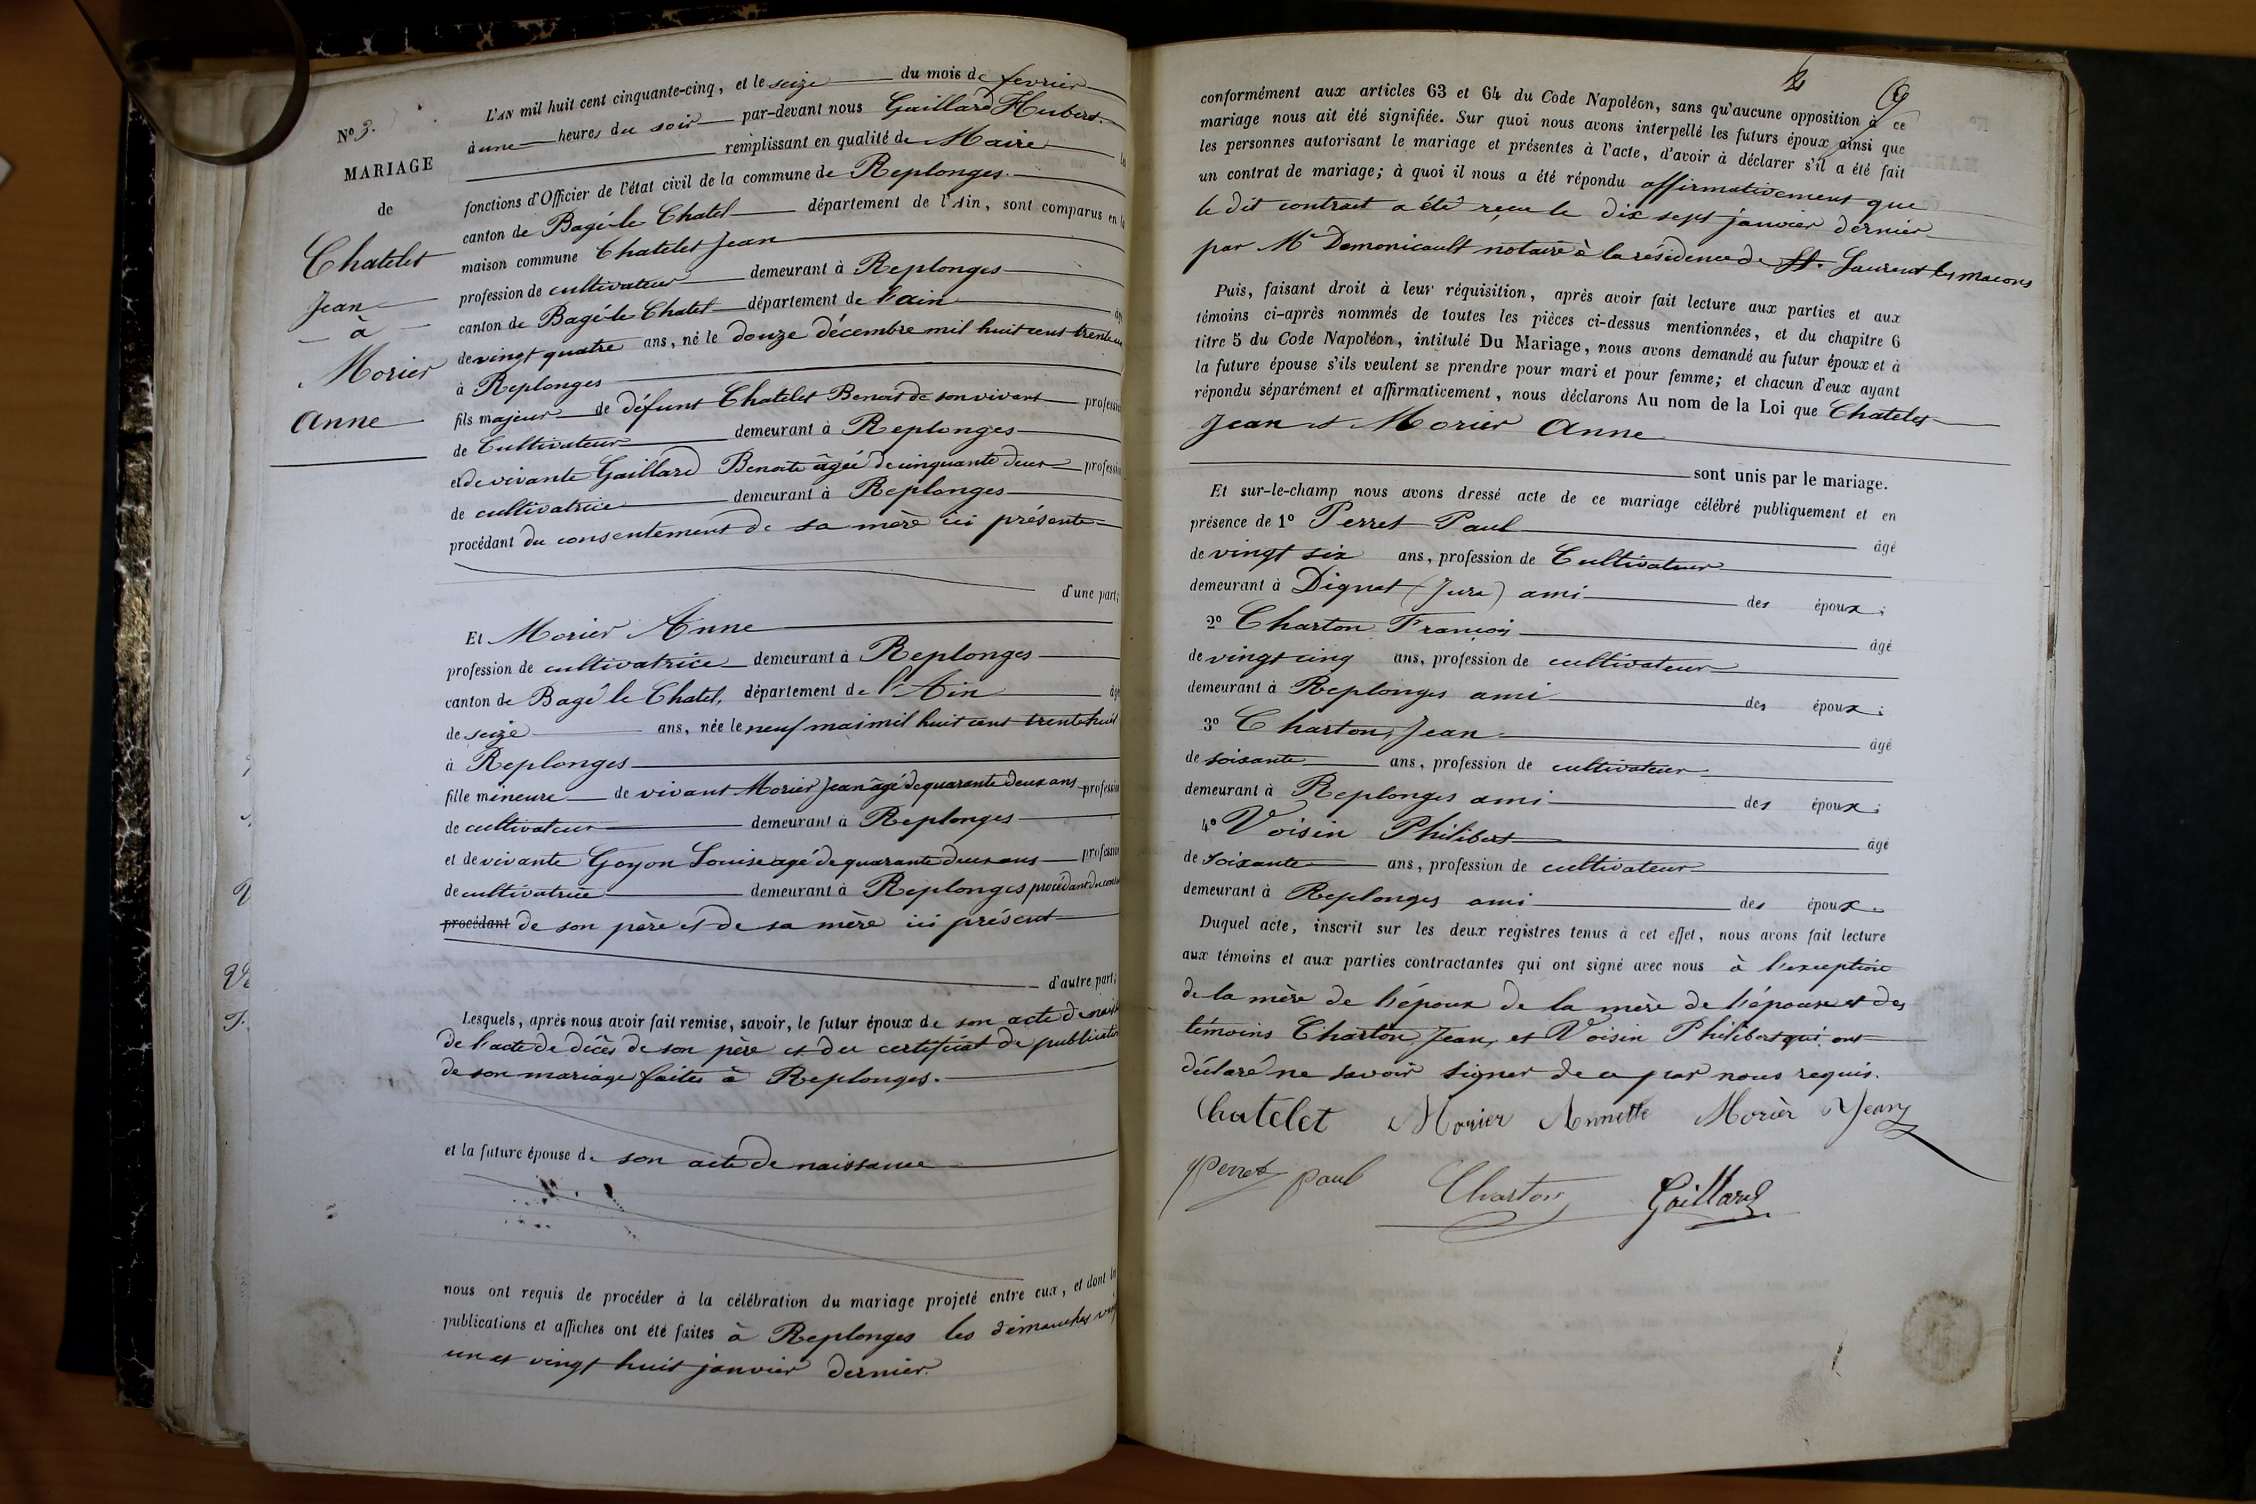 No 3.
MARIAGE
de
Chatelet
Jean
à
Morier
Anne
L'AN mil huit cent cinquante-cinq, et le seize du mois de fevrier
à une heures du soir par-devant nous Gaillard Hubert
remplissant en qualité de Maire
fonctions d'Officier de l'état civil de la commune de Replonges
canton de Bagé-le Chatel département de l'Ain, sont comparus en la
maison commune Chatelet Jean
profession de cultivateur demeurant à Replonges
canton de Bagé-le Chatel département de l'ain
de vingt quatre ans, né le douze décembre mil huit cent trente
à Replonges
fils majeur de défunt Chatelet Benoit de son vivant
de Cultivateur demeurant à Replonges
et de vivante Gaillard Benoite âgée de cinquante deux
de cultivatrice demeurant à Replonges
procédant du consentement de sa mère ici présente
d'une part;
Et Morier Anne
profession de cultivatrice demeurant à Replonges
canton de Bagé le Chatel, département de l'Ain
de seize ans, née le neuf mai mil huit cent trente huit
à Replonges
fille mineure de vivant Morier Jean âgé de quarante deux ans
de cultivateur demeurant à Replonges
et de vivante Goyon Louise agé de quarante deux ans
de cultivatrice demeurant à Replonges procédant du
procédant de son père et de sa mère ici présent
d'autre part;
Lesquels, après nous avoir fait remise, savoir, le futur époux de son acte de
de l'acte de décès de son père et du certificat de
de son mariage faites à Replonges.
et la future épouse de son acte de naissance
nous ont requis de procéder à la célébration du mariage projeté entre eux, et dont
publications et affiches ont été faites à Replonges les dimanches
un et vingt huit janvier dernier.
conformément aux articles 63 et 64 du Code Napoléon, sans qu'aucune opposition à ce
mariage nous ait été signifiée. Sur quoi nous avons interpellé les futurs époux ainsi que
les personnes autorisant le mariage et présentes à l'acte, d'avoir à déclarer s'il a été fait
un contrat de mariage; à quoi il nous a été répondu affirmativement que
le dit contrat a été reçu le dix sept janvier dernier
par Me Demonicault notaire à la résidence de St. Laurent les macons
Puis, faisant droit à leur réquisition, après avoir fait lecture aux parties et aux
témoins ci-après nommés de toutes les pièces ci-dessus mentionnées, et du chapitre 6
titre 5 du Code Napoléon, intitulé Du Mariage, nous avons demandé au futur époux et à
la future épouse s'ils veulent se prendre pour mari et pour femme; et chacun d'eux ayant
répondu séparément et affirmativement, nous déclarons Au nom de la Loi que Chatelet
Jean et Morier Anne
sont unis par le mariage.
Et sur-le-champ nous avons dressé acte de ce mariage célébré publiquement et en
présence de 1o Perret Paul âgé
de vingt six ans, profession de Cultivateur
demeurant à Dignat (Jura) ami des époux;
2o Charton François âgé
de vingt cinq ans, profession de cultivateur
demeurant à Replonges ami des époux;
3o Charton Jean âgé
de soixante ans, profession de cultivateur
demeurant à Replonges ami des époux;
4o Voisin Philibert âgé
de soixante ans, profession de cultivateur
demeurant à Replonges ami des époux.
Duquel acte, inscrit sur les deux registres tenus à cet effet, nous avons fait lecture
aux témoins et aux parties contractantes qui ont signé avec nous à l'exception
de la mère de l'époux de la mère de l'épouse et des
témoins Charton Jean, et Voisin Philibert qui ont
déclaré ne savoir signer de ce par nous requis.
Chatelet Morier Annette Morier Jean
Perret paul Charton Gaillard